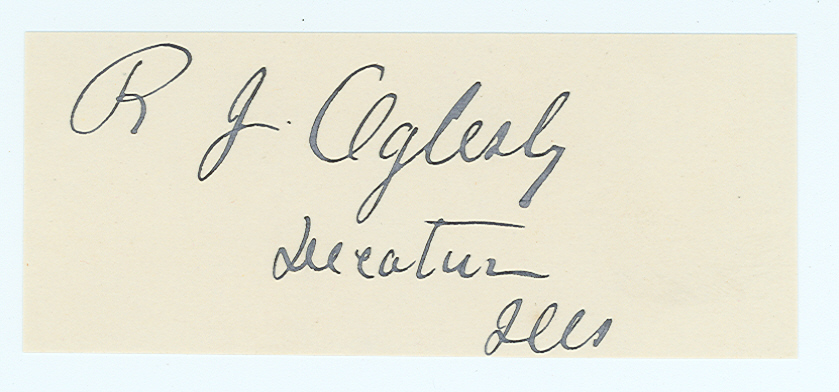 R J. Oglesby
Decatur
Ills